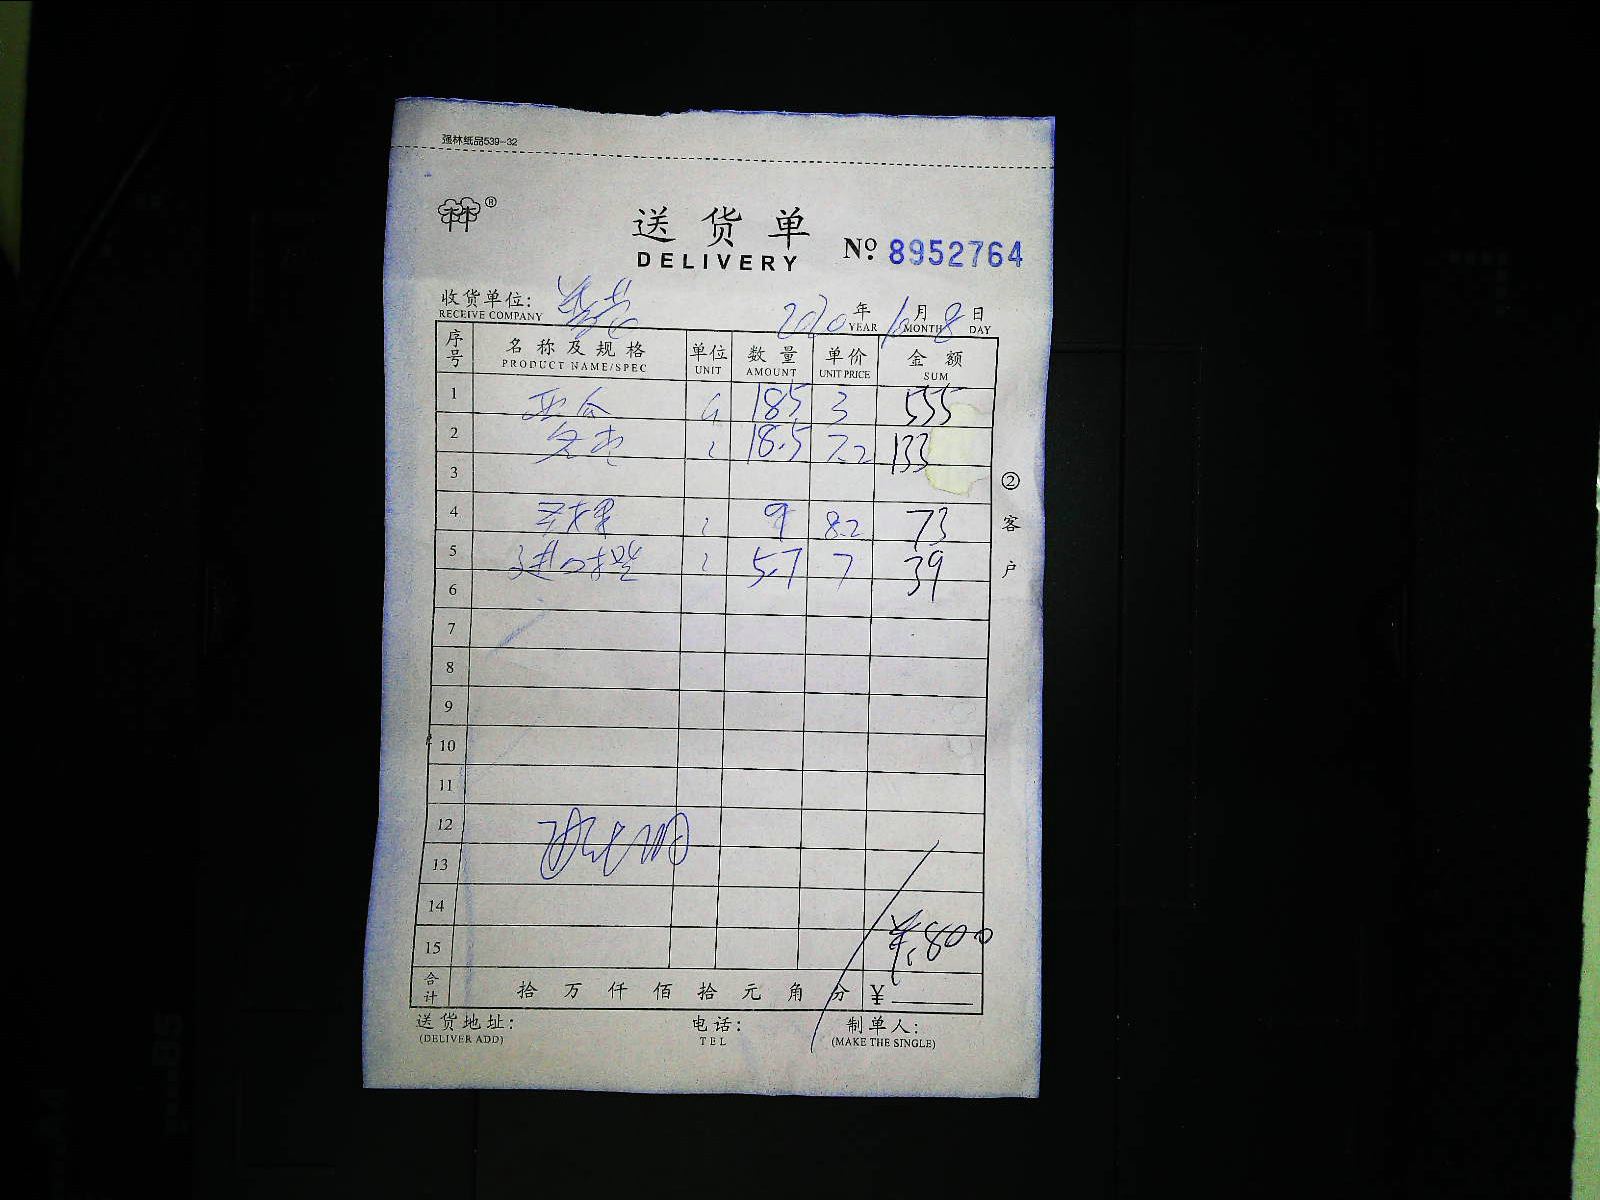 强林纸品539-32
®
送货单
DELIVERY
№ 8952764
收货单位:
RECEIVE COMPANY
2020年10月8日
YEAR MONTH DAY
序号 名称及规格 单位 数量 单价 金额
PRODUCT NAME/SPEC UNIT AMOUNT UNIT PRICE SUM
1 185 3 555
2 18.5 7.2 133
3
4 9 8.2 73
5 进口 5.7 7 39
6
7
8
9
10
11
12
13
14
15
¥:800
合计 拾 万 仟 佰 拾 元 角 分 ¥
送货地址: 电话: 制单人:
(DELIVER ADD) TEL (MAKE THE SINGLE)
②客户